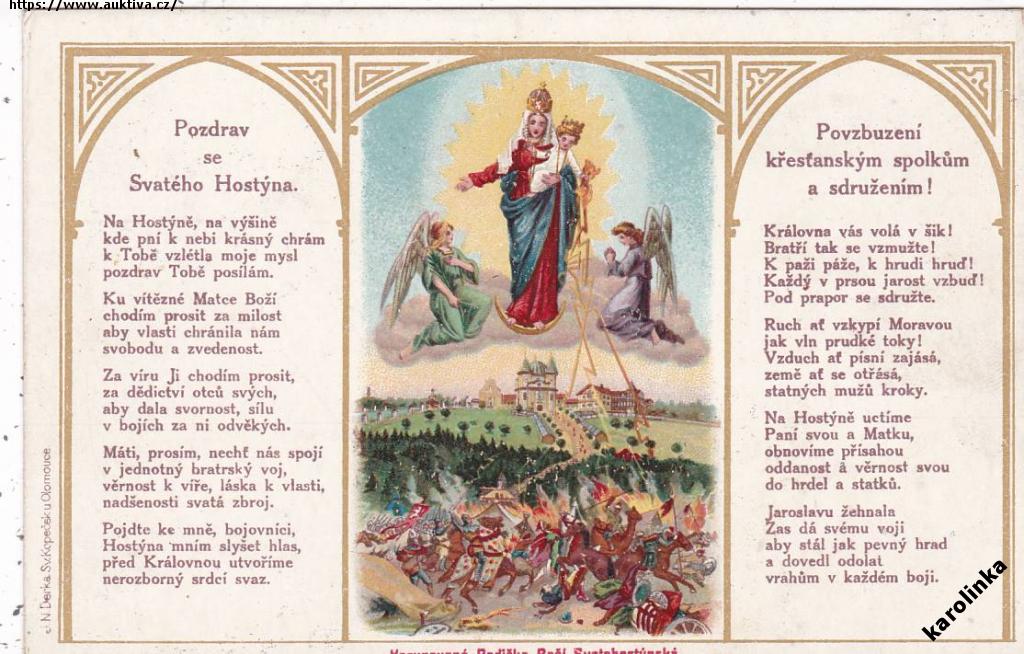 https://www.auktiva.cz/
Pozdrav
se
Svatého Hostýna.
Na Hostýně, na výšině
kde pní k nebi krásný chrám
k Tobě vzlétla moje mysl
pozdrav Tobě posílám.
Ku vítězné Matce Boží
chodím prosit za milost
aby vlasti chránila nám
svobodu a zvedenost.
Za víru Ji chodím prosit,
za dědictví otců svých,
aby dala svornost, sílu
v bojích za ni odvěkých.
Máti, prosím, nechť nás spojí
v jednotný bratrský voj,
věrnost k víře, láska k vlasti,
nadšenosti svatá zbroj.
Pojdte ke mně, bojovníci,
Hostýna mním slyšet hlas,
před Královnou utvoříme
nerozborný srdcí svaz.
Povzbuzení
křesťanským spolkům
a sdružením!
Královna vás volá v šik!
Bratří tak se vzmužte!
K paži páže, k hrudi hruď!
Každý v prsou jarost vzbuď!
Pod prapor se sdružte.
Ruch ať vzkypí Moravou
jak vln prudké toky!
Vzduch ať písní zajásá,
země ať se otřásá,
statných mužů kroky.
Na Hostýně uctíme
Paní svou a Matku,
obnovíme přísahou
oddanost a věrnost svou
do hrdel a statků.
Jaroslavu žehnala
Zas dá svému voji
aby stál jak pevný hrad
a dovedl odolat
vrahům v každém boji.
N. Dierka Sv. Kopeček u Olomouce
karolinka